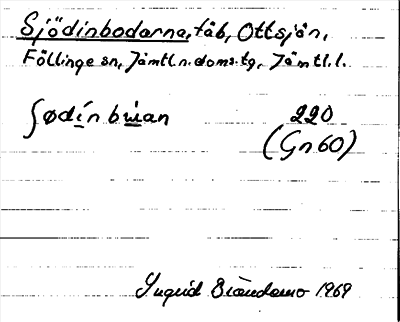 Sjödinbodarna, fäb, Ottsjön,
Föllinge sn, Jämtl n. doms. tg, Jämtl. l.
ʃødínbu̇an 220
(Gn 60)
Ingrid 1969